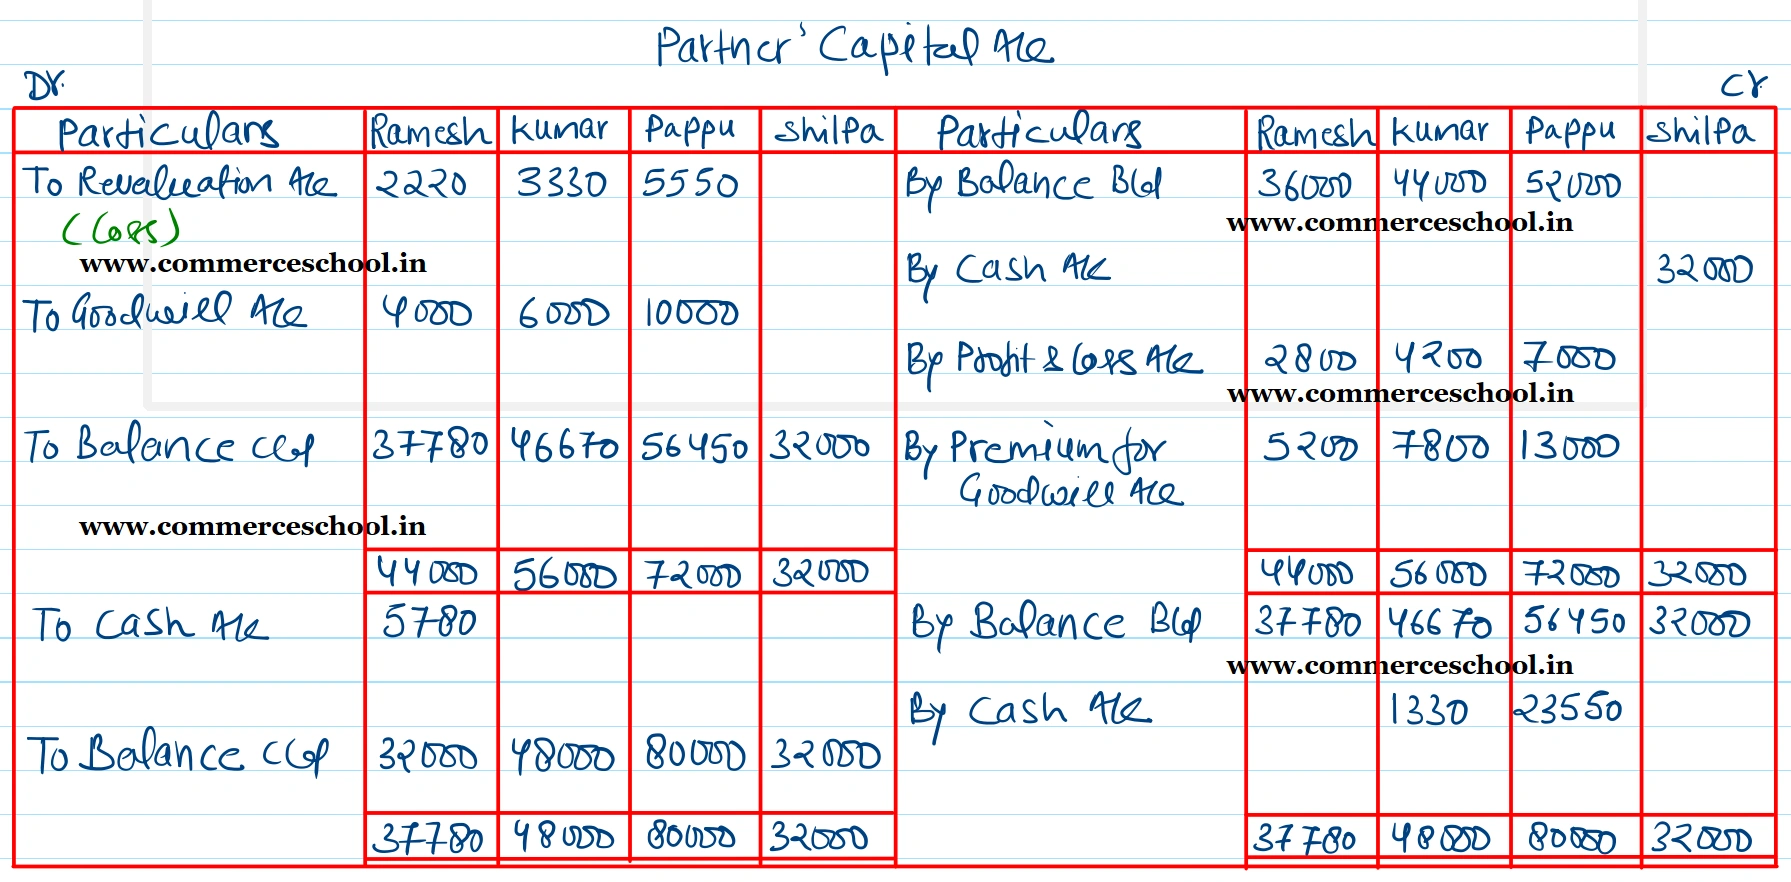 Partner's Capital A/c
Dr. Cr.
Particulars Ramesh Kumar Pappu Shilpa Particulars Ramesh Kumar Pappu Shilpa
To Revaluation A/c 2220 3330 5550 By Balance B/d 36000 44000 52000
(Loss) www.commerceschool.in
www.commerceschool.in By Cash A/c 32000
To Goodwill A/c 4000 6000 10000
By Profit & Loss A/c 2800 4200 7000
www.commerceschool.in
To Balance c/d 37780 46670 56450 32000 By Premium for 5200 7800 13000
Goodwill A/c
www.commerceschool.in
44000 56000 72000 32000 44000 56000 72000 32000
To Cash A/c 5780 By Balance B/d 37780 46670 56450 32000
www.commerceschool.in
By Cash A/c 1330 23550
To Balance C/d 32000 48000 80000 32000
37780 48000 80000 32000 37780 48000 80000 32000